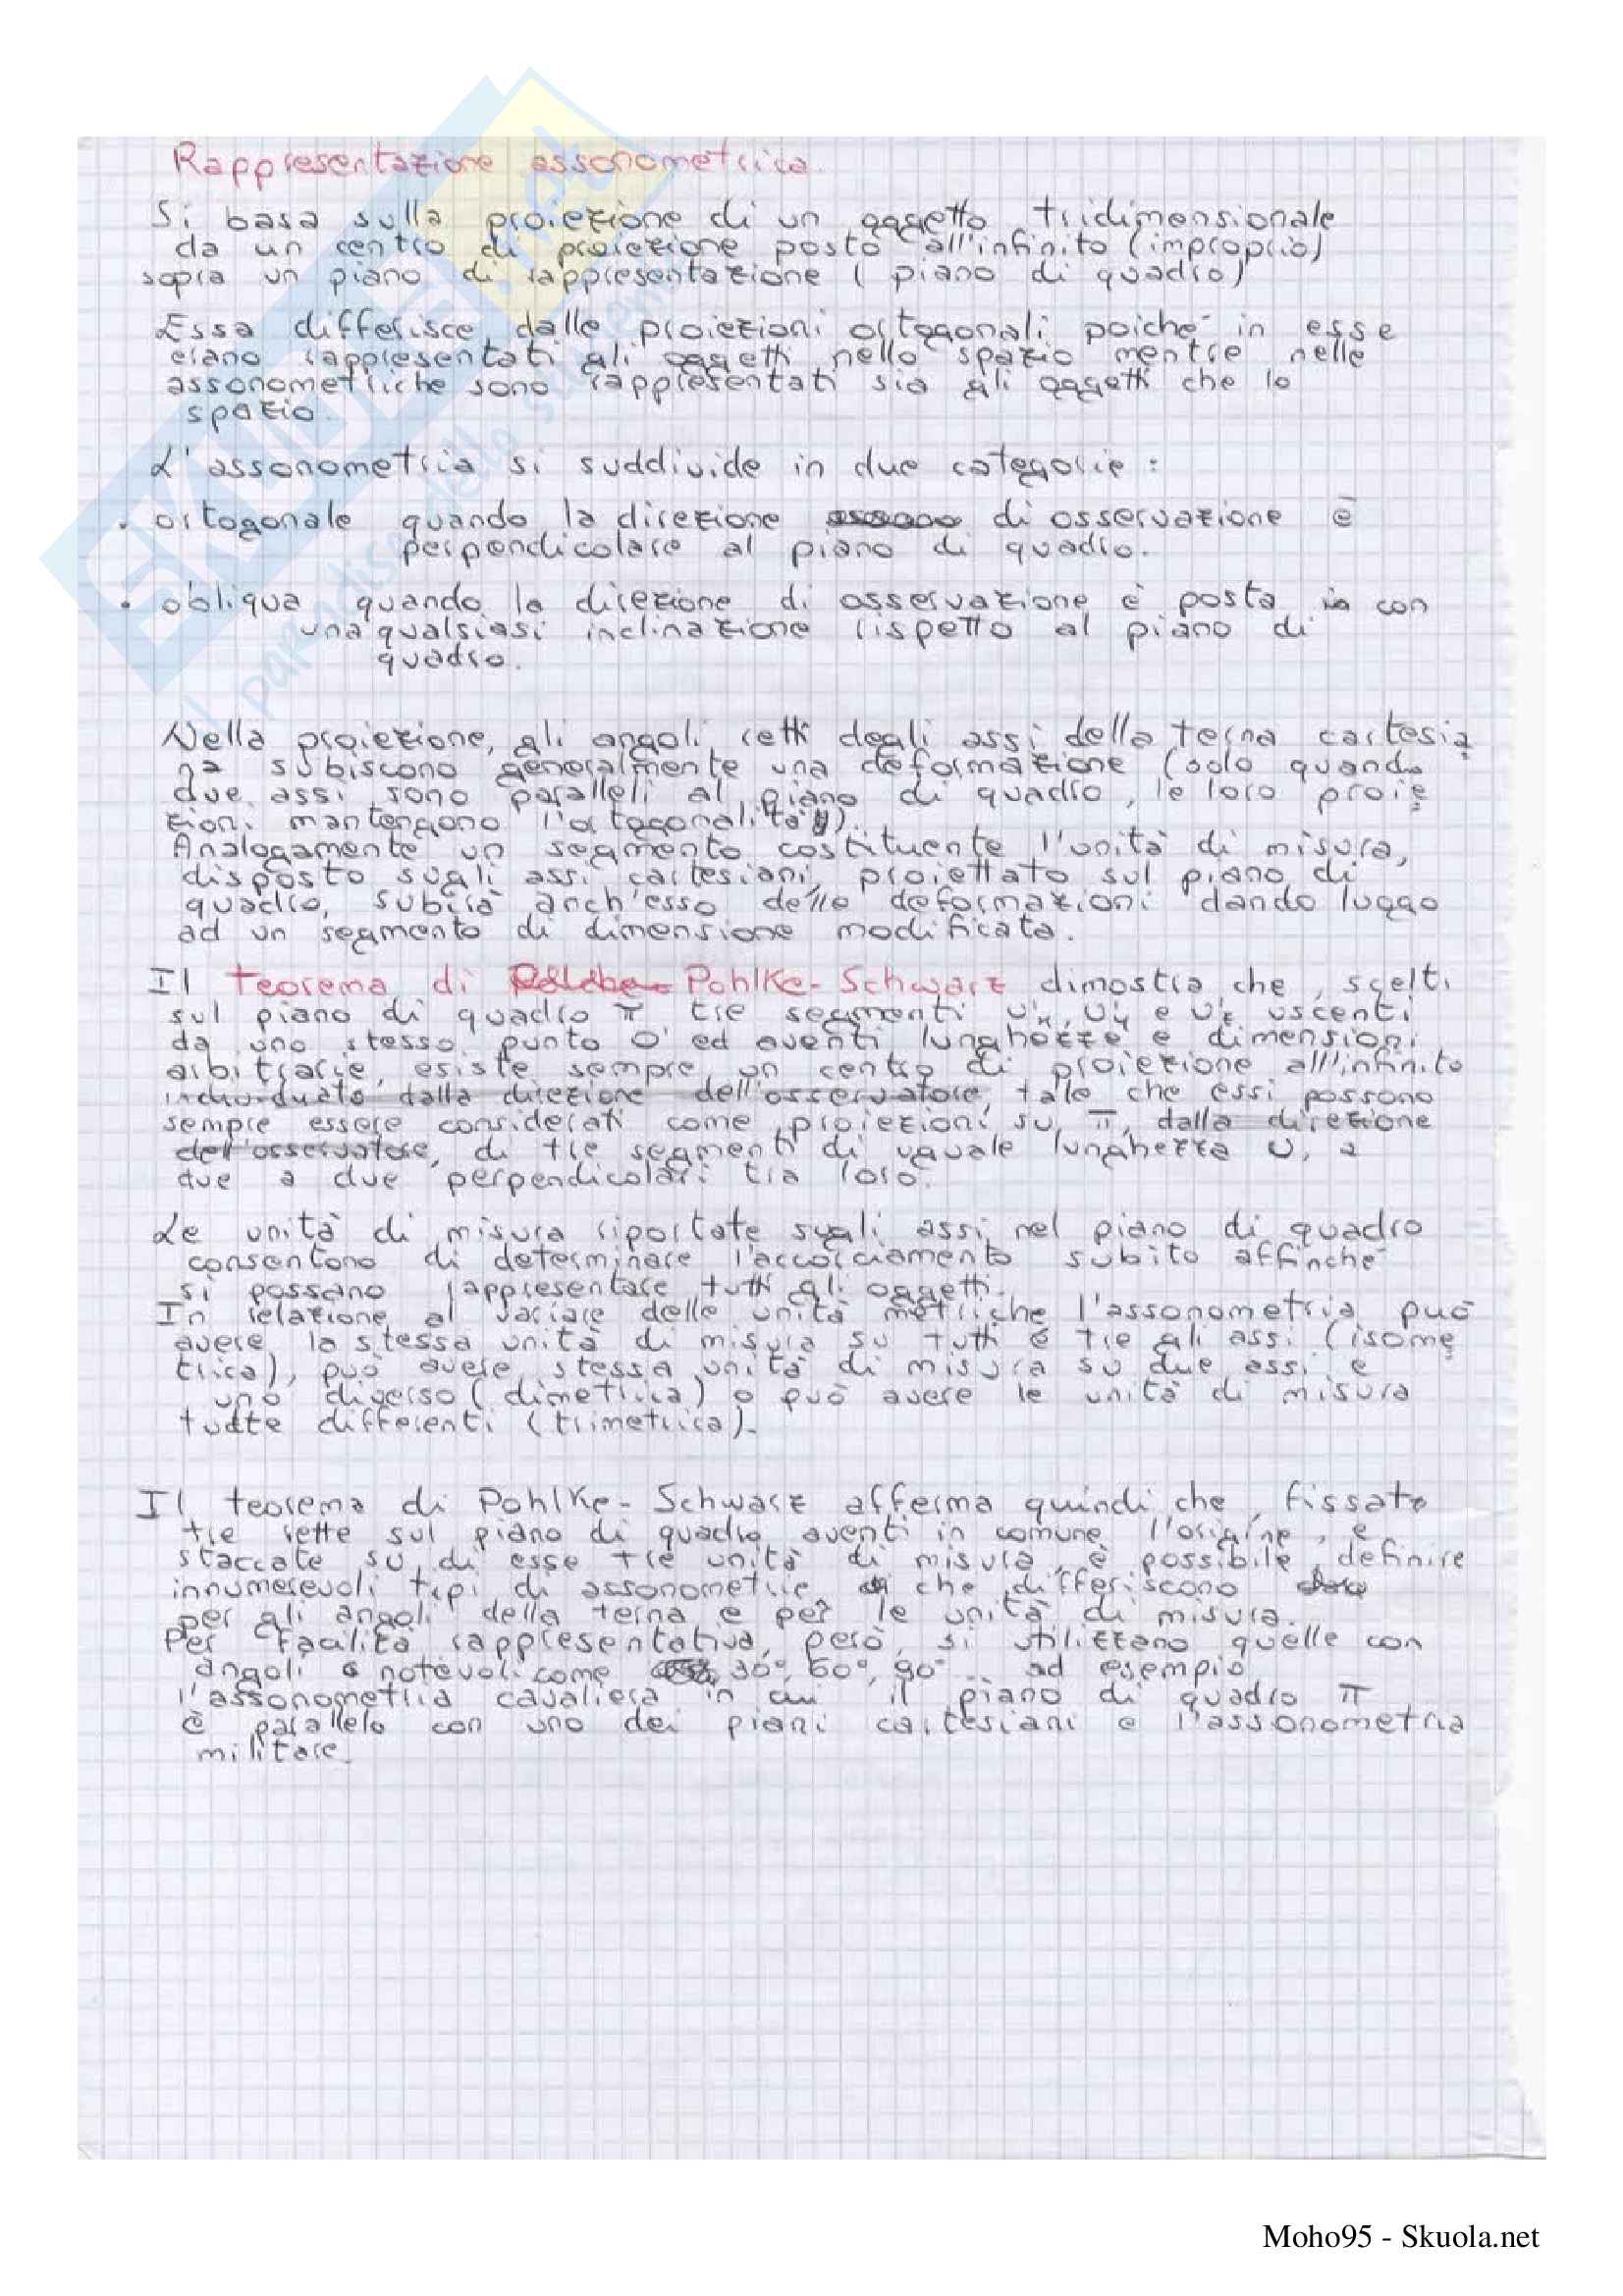 Rappresentazione assonometrica.
Si basa sulla proiezione di un oggetto tridimensionale
da un centro di proiezione posto all'infinito (improprio)
sopra un piano di rappresentazione ( piano di quadro)
Essa differisce dalle proiezioni ortogonali poiché in esse
erano rappresentati gli oggetti nello spazio mentre nelle
assonometriche sono rappresentati sia gli oggetti che lo
spazio.
L'assonometria si suddivide in due categorie :
• ortogonale quando la direzione di osservazione è
perpendicolare al piano di quadro.
• obliqua quando la direzione di osservazione è posta con
una qualsiasi inclinazione rispetto al piano di
quadro.
Nella proiezione, gli angoli retti degli assi della terna cartesia
na subiscono generalmente una deformazione (solo quando
due assi sono paralleli al piano di quadro, le loro proie
zioni mantengono l'ortogonalità).
Analogamente un segmento costituente l'unità di misura,
disposto sugli assi cartesiani, proiettato sul piano di
quadro, subirà anch'esso delle deformazioni dando luogo
ad un segmento di dimensione modificata.
Il teorema di Pohlke-Schwarz dimostra che, scelti
sul piano di quadro π tre segmenti U'x, U'y e U'z uscenti
da uno stesso punto O' ed aventi lunghezze e dimensioni
arbitrarie, esiste sempre un centro di proiezione all'infinito
individuato dalla direzione dell'osservatore, tale che essi possono
sempre essere considerati come proiezioni su π, dalla direzione
dell'osservatore, di tre segmenti di uguale lunghezza U, a
due a due perpendicolari tra loro.
Le unità di misura riportate sugli assi nel piano di quadro
consentono di determinare l'accorciamento subito affinché
si possano rappresentare tutti gli oggetti.
In relazione al variare delle unità metriche l'assonometria può
avere la stessa unità di misura su tutti e tre gli assi (isome
trica), può avere stessa unità di misura su due assi e
uno diverso (dimetrica) o può avere le unità di misura
tutte differenti (trimetrica).
Il teorema di Pohlke-Schwarz afferma quindi che, fissate
tre rette sul piano di quadro aventi in comune l'origine, e
staccate su di esse tre unità di misura, è possibile definire
innumerevoli tipi di assonometrie che differiscono
per gli angoli della terna e per le unità di misura.
Per facilità rappresentativa, però, si utilizzano quelle con
angoli notevoli come 30°, 60°, 90° .. ad esempio
l'assonometria cavaliera in cui il piano di quadro π
è parallelo con uno dei piani cartesiani e l'assonometria
militare.
Moho95 - Skuola.net